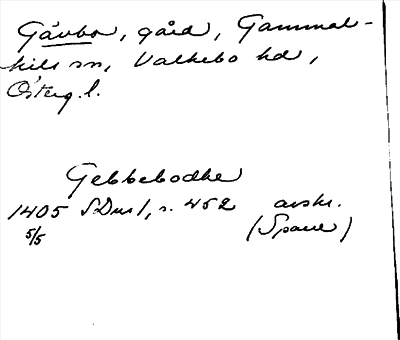 Gävbo, gård, Gammal-
kils sn, Valkebo hd,
Österg. l.
Gebbebodhe
1405 SDns 1, s. 452 avskr.
5/5 (Spare)